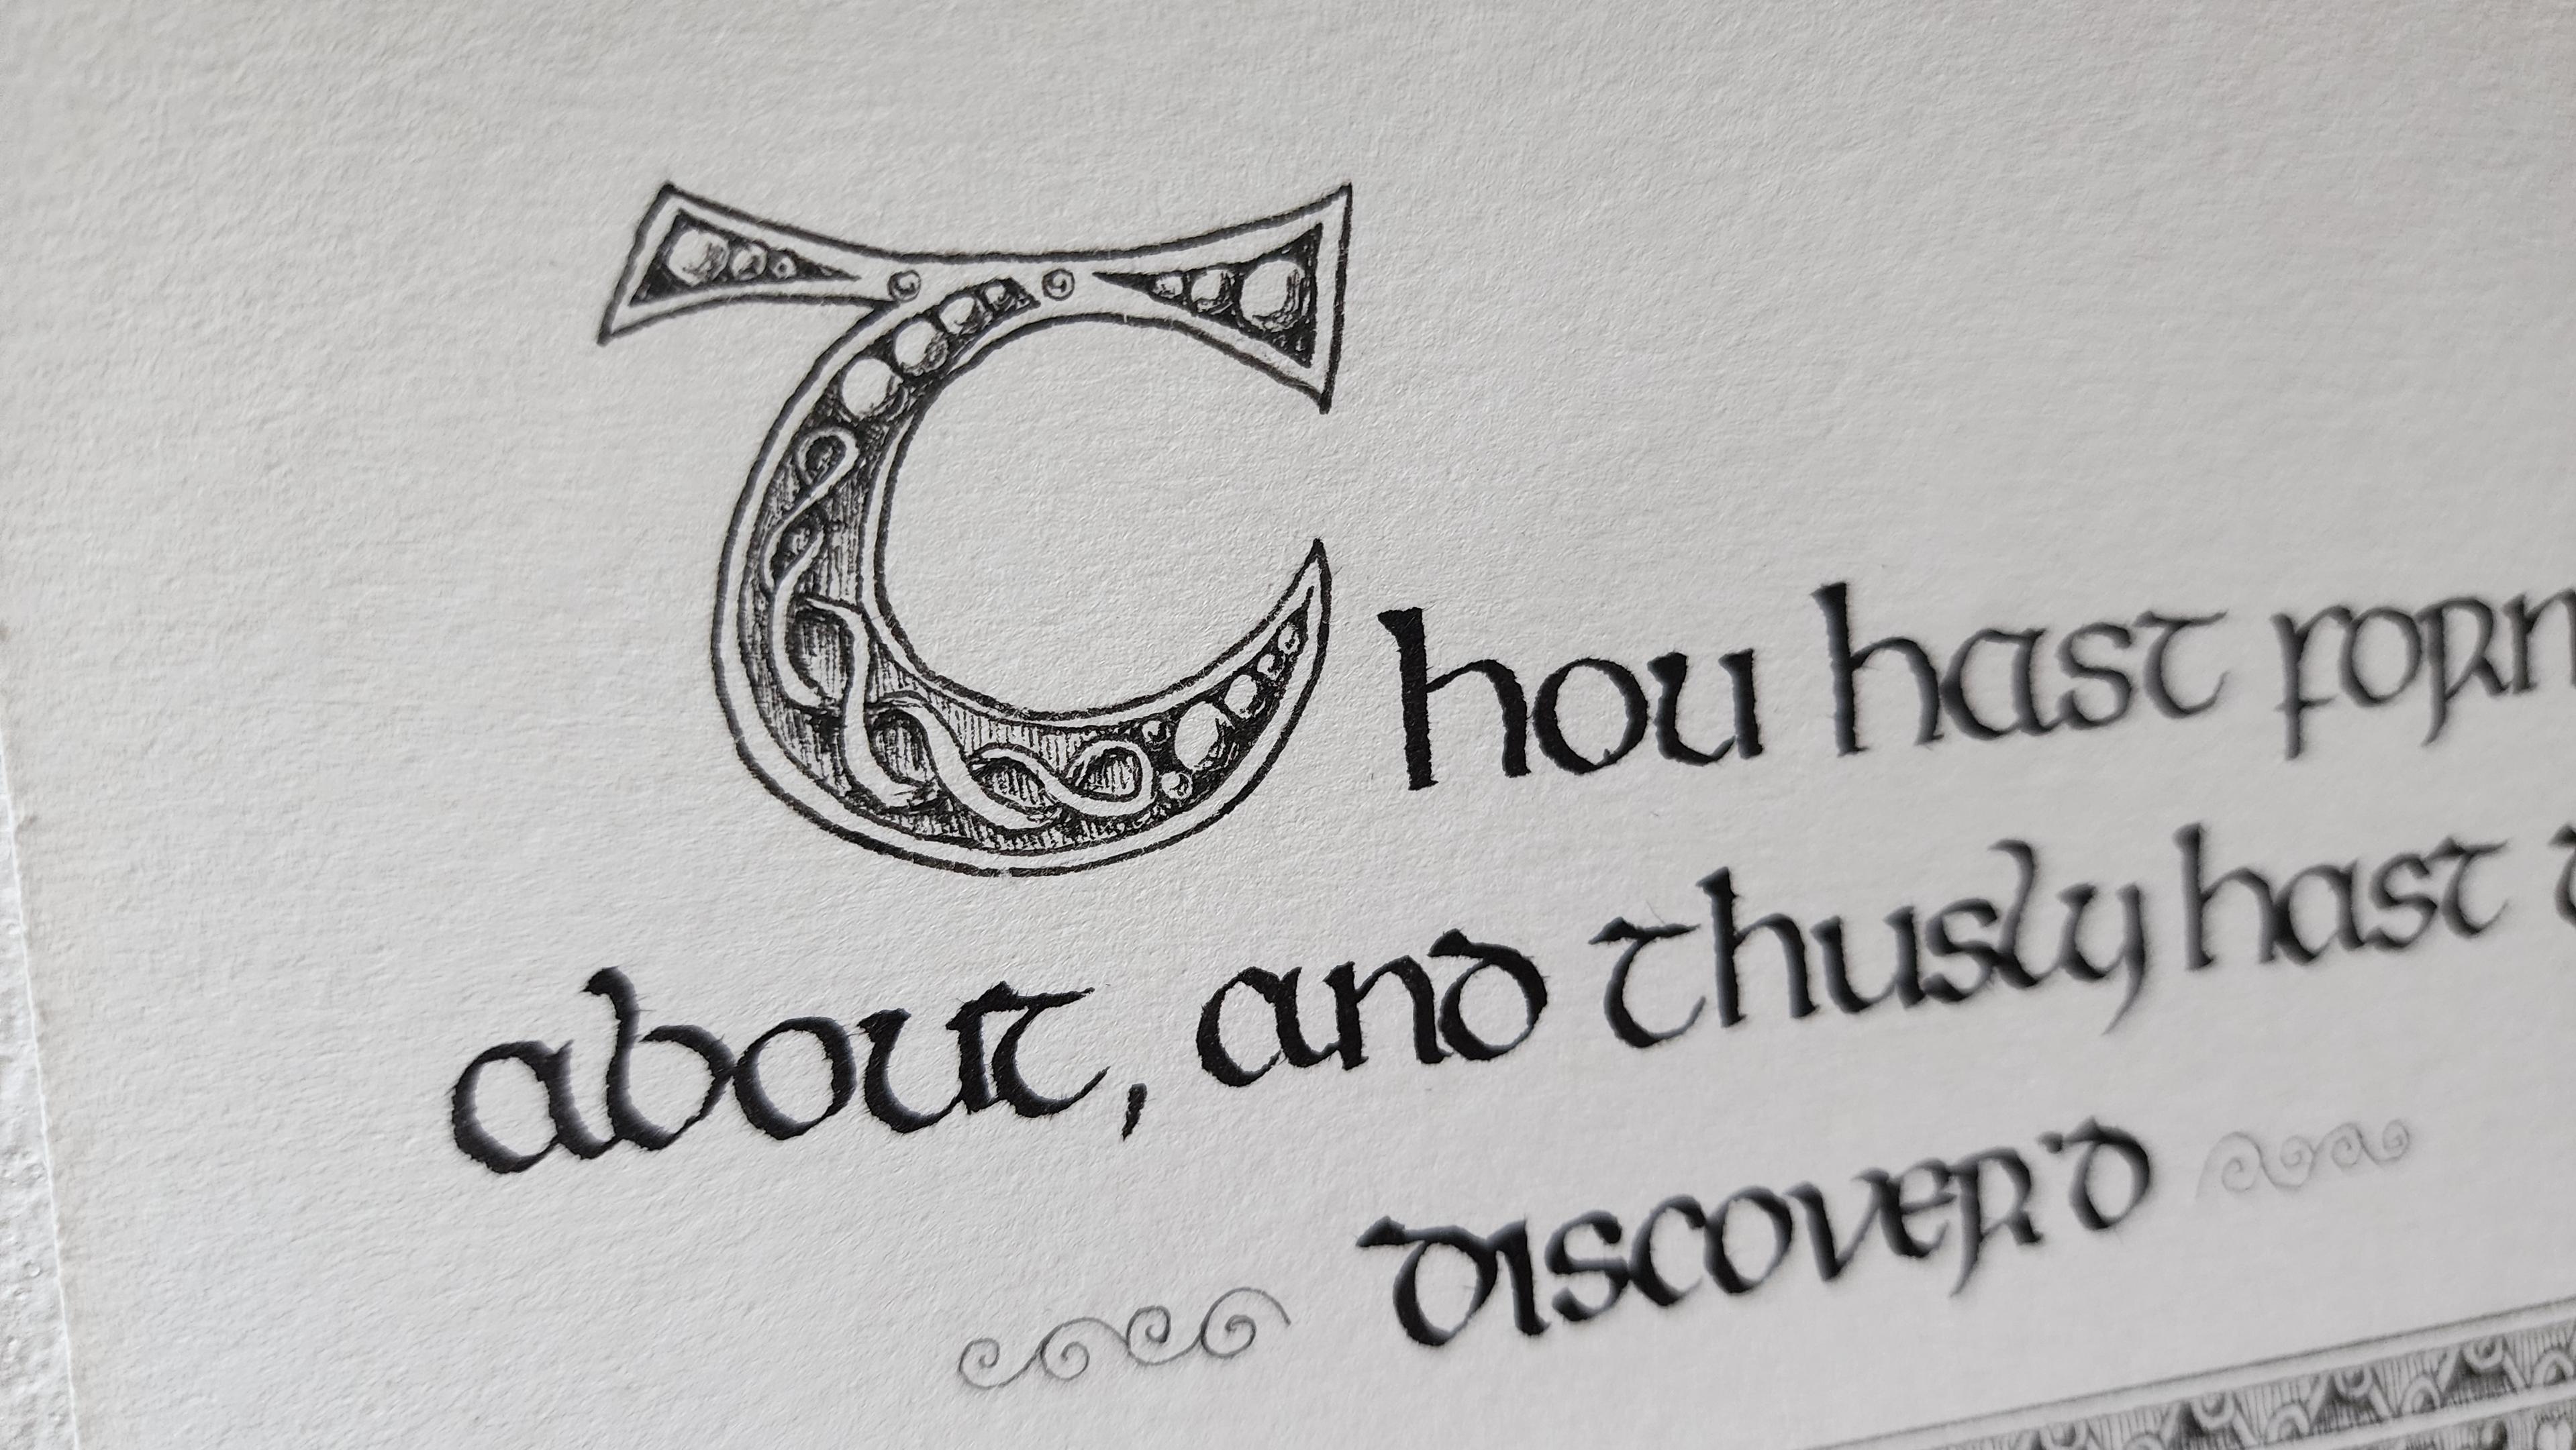 Thou hast
about, and thusly hast
discover'd